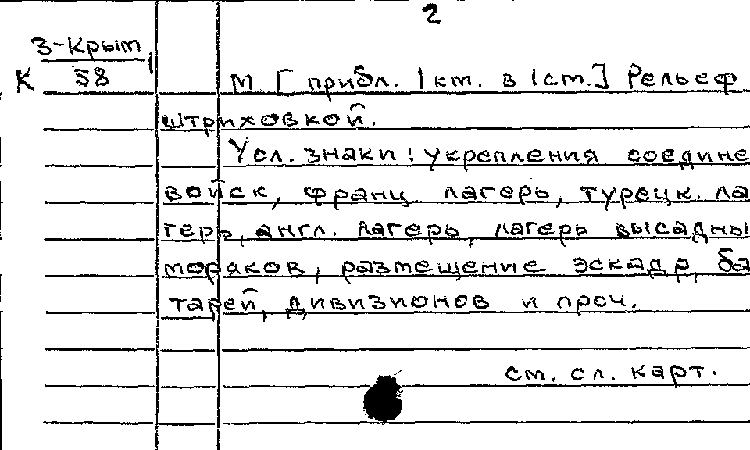 2
3-Крым
К 58
М [прибл. 1км. в 1см.] Рельеф
штриховкой.
Усл. знаки: укрепления соедине
войск, франц. лагерь, турецк. ла
герь, англ. лагерь, лагерь высадны
моряков, размещение эскадр, ба
тарей, дивизионов и проч.
см. сл. карт.